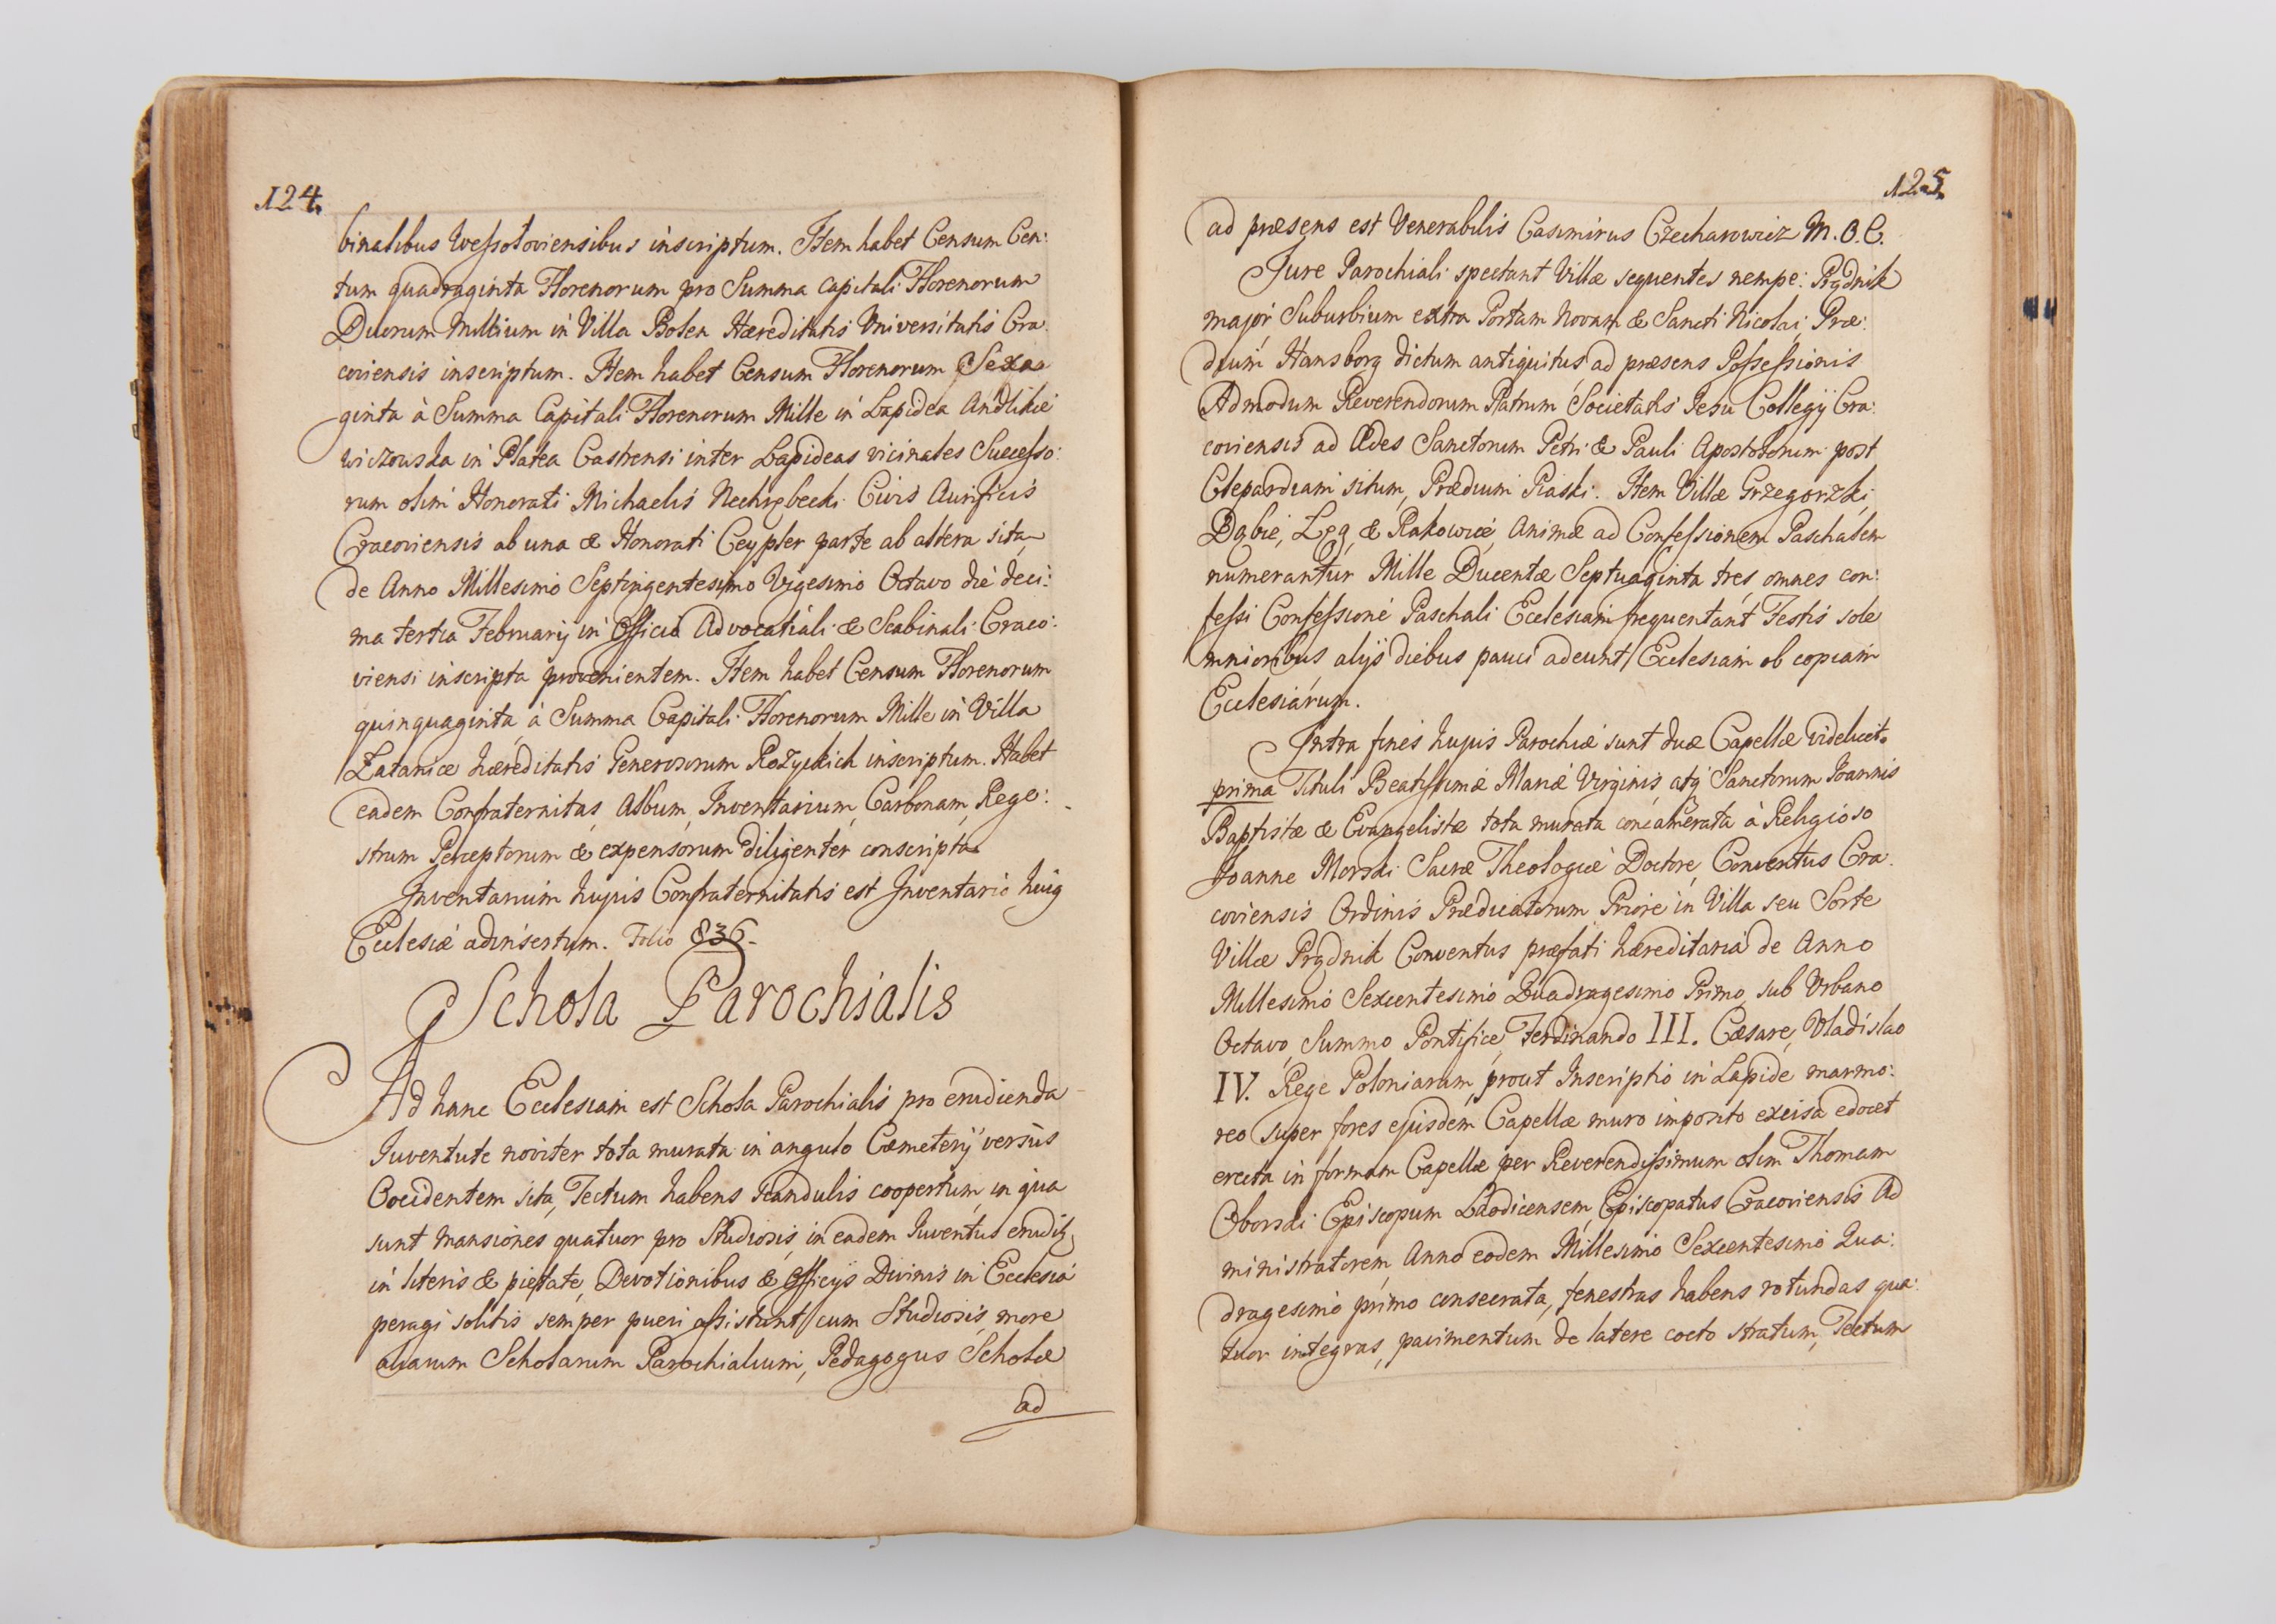 124.
binalibus Wessołoviensibus inscriptum. Item habet Censum Cen:
tum quadraginta Florenorum pro Summa capitali Florenorum
Duorum Millium in Villa Bolen Hæreditatis Universitatis Cra:
coviensis inscriptum. Item habet Censum Florenorum Sexa
ginta à Summa Capitali Florenorum Mille in Lapidea Andlikie
wiczowska in Platea Castrensi inter Lapideas vicinales Successo:
rum olim Honorati Michaelis Civis Aurificis
Cracoviensis ab una & Honorati Ceypler parte ab altera sita,
de Anno Millesimo Septingentesimo Vigesimo Octavo die deci:
ma tertia Februarij in Officio Advocatiali & Scabinali Craco:
viensi inscripta provenientem. Item habet Censum Florenorum
quinquaginta, à Summa Capitali Florenorum Mille in Villa
Łatanice hæreditatis Generosorum Rożyckich inscriptum. Habet
eadem Confraternitas, Album, Inventarium, Carbonam, Rege:
strum Perceptorum & expensorum diligenter conscripta.
Inventarium hujus Confraternitatis est Inventario huig
Ecclesiæ adinsertum. Folio 836.
Schola Parochialis
Ad hanc Ecclesiam est Schola Parochialis pro erudienda
Iuventute noviter tota murata in angulo Cæmeterij versùs
Occidentem sita, Tectum habens scandulis coopertum, in qua
sunt mansiones quatuor pro Studiosis, in eadem Iuventus erudit
in literis & pietate, Devotionibus & Officijs Divinis in Ecclesia
peragi solitis semper pueri assistunt cum Studiosis, more
aliarum Scholarum Parochialium, Pedagogus Scholæ
ad
125.
ad præsens est Venerabilis Casimirus Czechanowicz M. O. C.
Jure Parochiali spectant Villæ sequentes nempe: Prądnik
major Suburbium extra Portam Novam & Sancti Nicolai, Præ:
dium Hansborg dictum antiquitus ad præsens Possessionis
Admodum Reverendorum Patrum Societatis Iesu Collegij Cra:
coviensis ad Ædes Sanctorum Petri & Pauli Apostolorum post
Clepardiam situm, Prædium Piaski. Item Villæ Grzegorzki,
Dąbie, Łęg, & Rakowice, Animæ ad Confessionem Paschalem
numerantur Mille Ducentæ Septuaginta tres, omnes con:
fessi Confessione Paschali Ecclesiam frequentant Festis sole
mnioribus alijs diebus pauci adeunt Ecclesiam ob copiam
Ecclesiarum.
Intra fines hujus Parochiæ sunt duæ Capellæ videlicet.
prima Tituli Beatissimæ Mariæ Virginis, atq Sanctorum Ioannis
Baptistæ & Evangelistæ tota murata concamerata à Religioso
Joanne Morski Sacræ Theologiæ Doctore, Conventus Cra:
coviensis Ordinis Prædicatorum Priore in Villa seu Sorte
Villæ Prądnik Conventus præfati hæreditaria de Anno
Millesimo Sexcentesimo Quadragesimo Primo, sub Urbano
Octavo, Summo Pontifice, Ferdinando III. Cæsare, Vladislao
IV. Rege Poloniarum, prout Inscriptio in Lapide marmo:
reo super fores ejusdem Capellæ muro imposito excisa edocet
erecta in formam Capellæ per Reverendissimum olim Thomam
Oborski Episcopum Laodicensem, Episcopatus Cracoviensis Ad
ministratorem, Anno eodem Millesimo Sexcentesimo Qua:
dragesimo primo consecrata, fenestras habens rotundas qua:
tuor integras, pavimentum de latere cocto stratum, Tectum